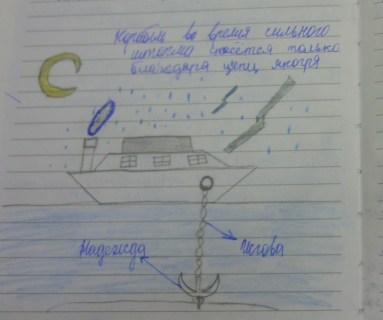 Корабль во время сильного
шторма спасётся только
благодаря цепи якоря
Надежда
Иегова